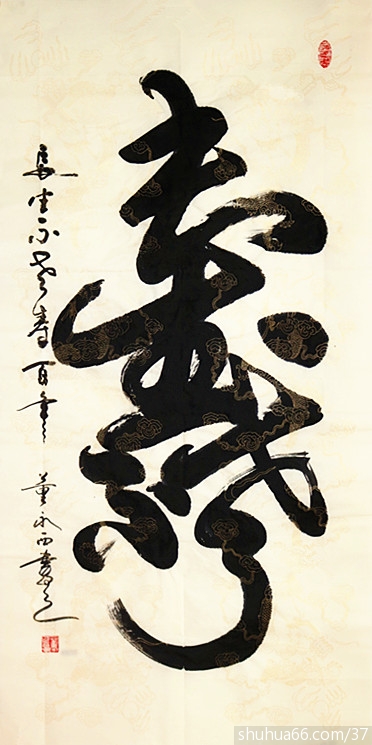 壽
長生不老壽百年
董永西書
shuhua66.com/37